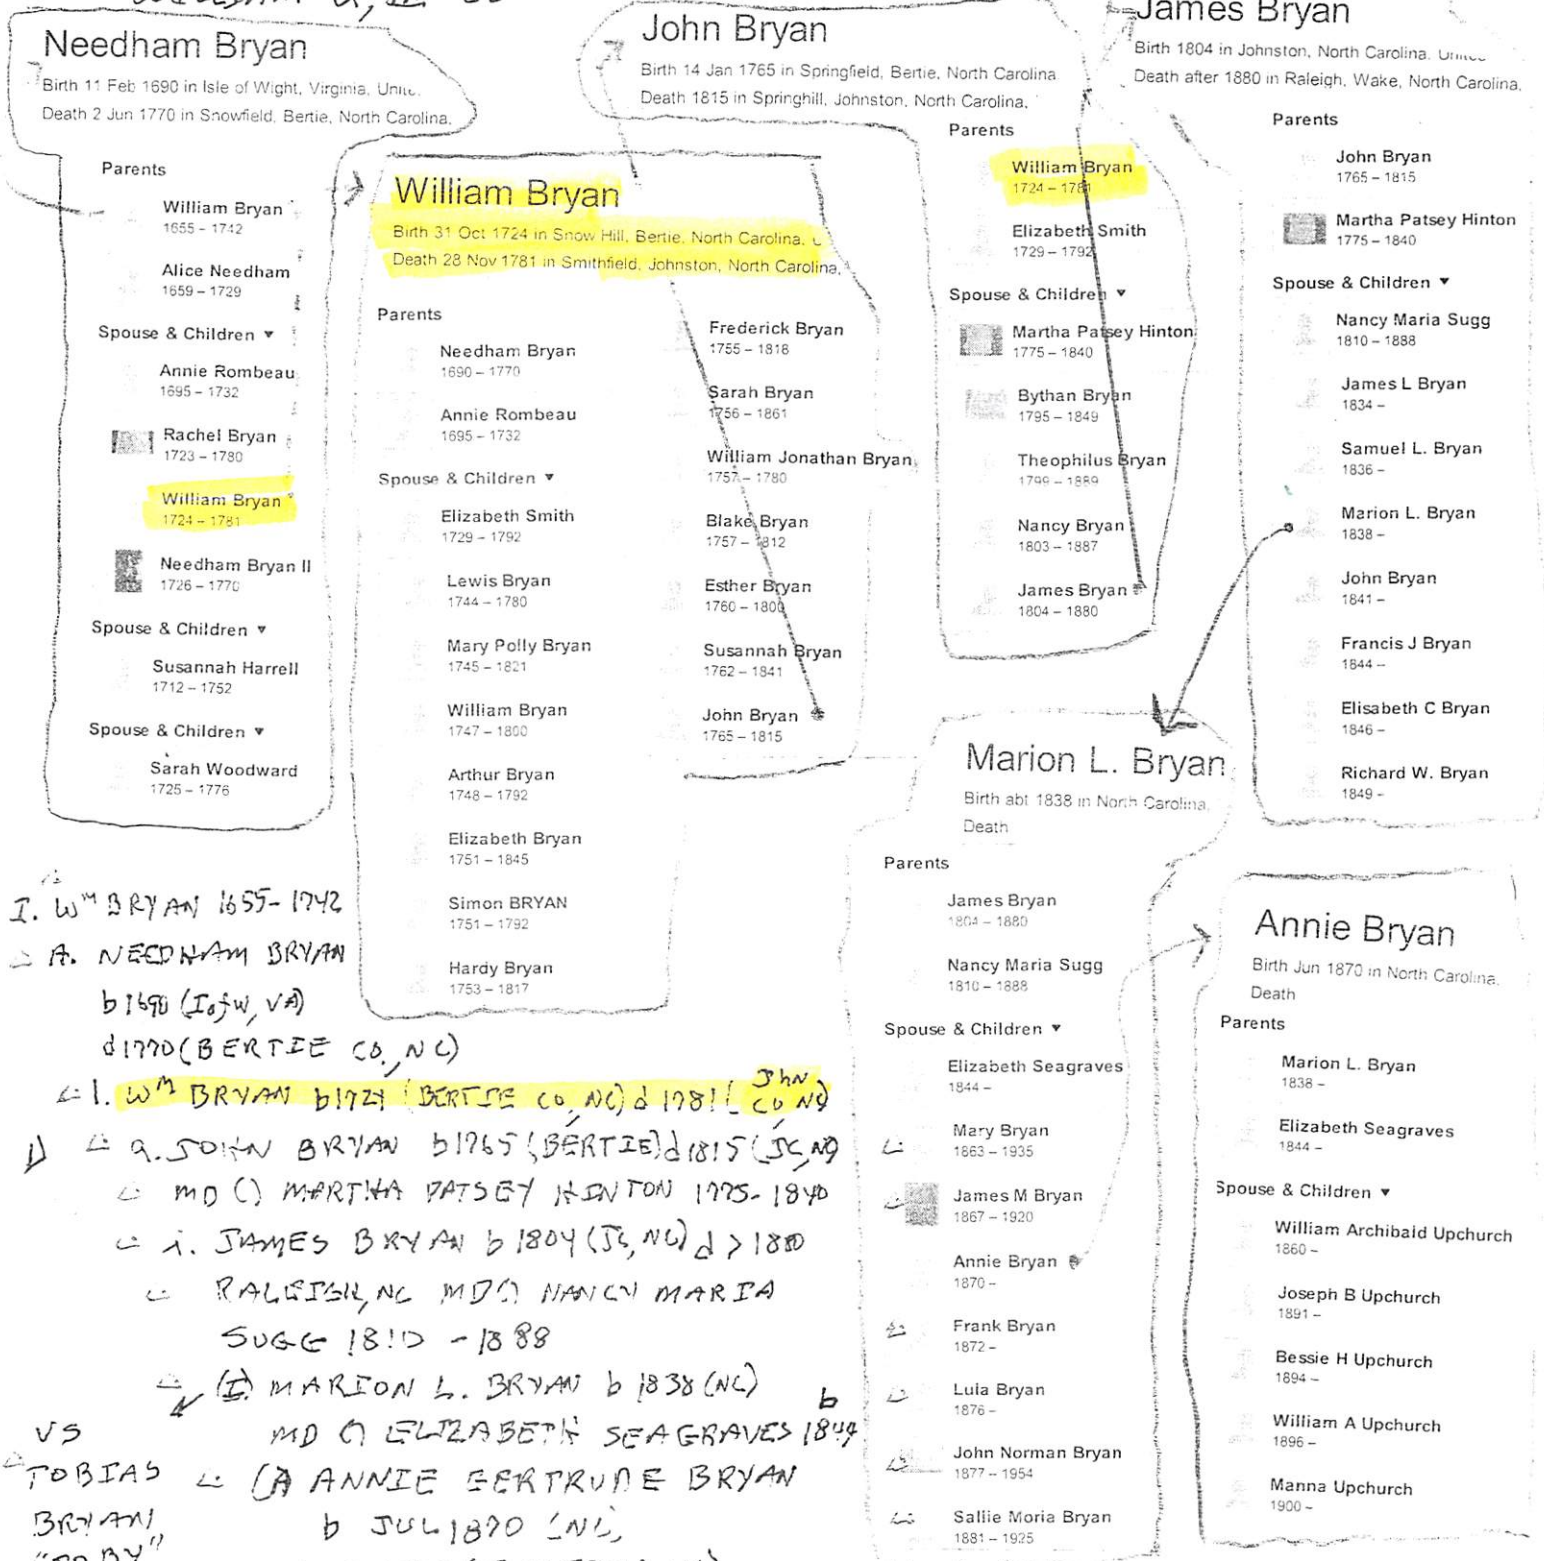 Needham Bryan
Birth 11 Feb 1690 in Isle of Wight, Virginia,
Death 2 Jun 1770 in Snowfield, Bertie, North Carolina,
Parents
William Bryan
1655 – 1742
Alice Needham
1659 – 1729
Spouse & Children ▼
Annie Rombeau
1695 – 1732
Rachel Bryan
1723 – 1780
William Bryan
1724 – 1781
Needham Bryan II
1726 – 1770
Spouse & Children ▼
Susannah Harrell
1712 – 1752
Spouse & Children ▼
Sarah Woodward
1725 – 1776
William Bryan
Birth 31 Oct 1724 in Snow Hill, Bertie, North Carolina,
Death 28 Nov 1781 in Smithfield, Johnston, North Carolina,
Parents
Needham Bryan
1690 – 1770
Annie Rombeau
1695 – 1732
Spouse & Children ▼
Elizabeth Smith
1729 – 1792
Lewis Bryan
1744 – 1780
Mary Polly Bryan
1745 – 1821
William Bryan
1747 – 1800
Arthur Bryan
1748 – 1792
Elizabeth Bryan
1751 – 1845
Simon BRYAN
1751 – 1792
Hardy Bryan
1753 – 1817
Frederick Bryan
1755 – 1818
Sarah Bryan
1756 – 1861
William Jonathan Bryan
1757 – 1780
Blake Bryan
1757 – 1812
Esther Bryan
1760 – 1800
Susannah Bryan
1762 – 1841
John Bryan
1765 – 1815
John Bryan
Birth 14 Jan 1765 in Springfield, Bertie, North Carolina
Death 1815 in Springhill, Johnston, North Carolina,
Parents
William Bryan
1724 – 1781
Elizabeth Smith
1729 – 1792
Spouse & Children ▼
Martha Patsey Hinton
1775 – 1840
Bythan Bryan
1795 – 1849
Theophilus Bryan
1799 – 1889
Nancy Bryan
1803 – 1887
James Bryan
1804 – 1880
James Bryan
Birth 1804 in Johnston, North Carolina,
Death after 1880 in Raleigh, Wake, North Carolina,
Parents
John Bryan
1765 – 1815
Martha Patsey Hinton
1775 – 1840
Spouse & Children ▼
Nancy Maria Sugg
1810 – 1888
James L Bryan
1834 –
Samuel L. Bryan
1836 –
Marion L. Bryan
1838 –
John Bryan
1841 –
Francis J Bryan
1844 –
Elisabeth C Bryan
1846 –
Richard W. Bryan
1849 –
Marion L. Bryan
Birth abt 1838 in North Carolina,
Death
Parents
James Bryan
1804 – 1880
Nancy Maria Sugg
1810 – 1888
Spouse & Children ▼
Elizabeth Seagraves
1844 –
Mary Bryan
1863 – 1935
James M Bryan
1867 – 1920
Annie Bryan
1870 –
Frank Bryan
1872 –
Lula Bryan
1876 –
John Norman Bryan
1877 – 1954
Sallie Moria Bryan
1881 – 1925
Annie Bryan
Birth Jun 1870 in North Carolina,
Death
Parents
Marion L. Bryan
1838 –
Elizabeth Seagraves
1844 –
Spouse & Children ▼
William Archibald Upchurch
1860 –
Joseph B Upchurch
1891 –
Bessie H Upchurch
1894 –
William A Upchurch
1896 –
Manna Upchurch
1900 –
I. Wm BRYAN 1655-1742
A. NEEDHAM BRYAN
b1690 (IofW, VA)
d1770 (BERTIE CO, NC)
1. Wm BRYAN b1724 (BERTIE CO, NC) d 1781 (JhN CO NC)
a. JOHN BRYAN b1765 (BERTIE) d1815 (JC, NC)
MD () MARTHA PATSEY HINTON 1775-1840
i. JAMES BRYAN b 1804 (JC, NC) d > 1880
RALEIGH, NC MD () NANCY MARIA
SUGG 1810 - 1888
(I) MARION L. BRYAN b 1838 (NC)
MD () ELIZABETH SEAGRAVES b 1844
(A) ANNIE GERTRUDE BRYAN
b JUL 1870 (NC)
VS
TOBIAS
BRYAN
"TOBY"